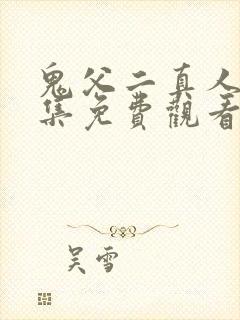 鬼父二真人
集免費觀看
吴雪